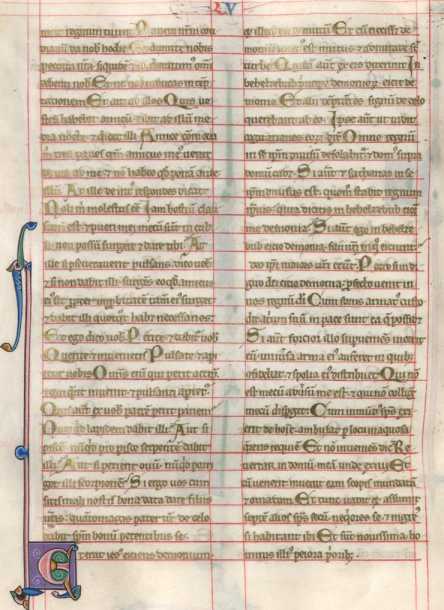 LV
niat regnum tuum. Panem nrm coti
dianum da nob hodie. Et dimitte nobis
peccata nra. siquidem & ipsi dimittim omi
debenti nob. Et ne nos inducas in tep
tationem. Et ait ad illos. Quis ve
strum habebit amicum & ibit ad illum me
dia nocte & dicet illi. Amice comoda
m tres panes qm amicus ms venit
de via ad me & n habeo qd pona ante
illum. Et ille de intus respondens dicat.
Noli m molestus ee. Iam hostium clau
sum est & pueri mei mecum sunt in cubi
li. non possum surgere & dare tibi. Et
ille si perseveraverit pulsans. dico vob
& si non dabit illi surgens eo qd amicus
ei sit. ppter improbitatem tam ei surget
& dabit illi quotqt habet necessarios.
Et ego dico vob. Petite & dabit vob.
Querite & invenietis. Pulsate & api
etur vobis. Omis enim qui petit accipit.
& qui querit invenit. & pulsanti apietur.
Quis aut ex vob patrem petit panem
Nunqd lapidem dabit illi. Aut si
piscem. nuqd pro pisce serpentem dabit
illi. Aut si petierit ovum. nuqd pori
get illi scorpionem. Si ergo vos cum
sitis mali nostis bona data dare filiis
vris. quantomagis pater vr de celo
dabit spm bonum petentibus se.
Et erat ihs eiciens demonium.
& illud erat mutum. Et cum eiecisset de
monium locutus est mutus & admirate st
turbe. Quidam aut ex eis dixerunt. In
beelzebub principe demoniorum eicit de
monia. Et alii temptantes signum de celo
querebant ab eo. Ipse aut ut vidit
cogitationes eorum dixit. Omne regnum
in se ipm divisum desolabitur & domus supra
domum cadet. Si aut & sathanas in se
ipm divisus est. quom stabit regnum
ipsius. quia dicitis in beelzebub eicere
me demonia. Si aut ego in beelze
bub eicio demonia. filii vri in quo eiciunt.
Ideo ipi iudices vri erunt. Porro si in di
gito dei eicio demonia. pfecto venit in
vos regnum di. Cum fortis armatus custo
dit atrium suum in pace sunt ea que possidet.
Si aut fortior illo superveniens vicerit
eum universa arma ei auferet in quib
confidebat & spolia ei distribuet. Qui non
est mecum adversum me est. & qui non colligit
mecum dispergit. Cum inmundus sps exi
erit de hoie. ambulat p loca inaquosa
querens requiem. Et non inveniens dicit. Re
vertar in domum meam unde exivi. Et
cum venerit invenit eam scopis mundatam
& ornatam. Et tunc vadit & assumit
septem alios sps secum nequiores se. & ingressi
si habitant ibi. Et sunt novissima ho
minis illi peiora priorib.